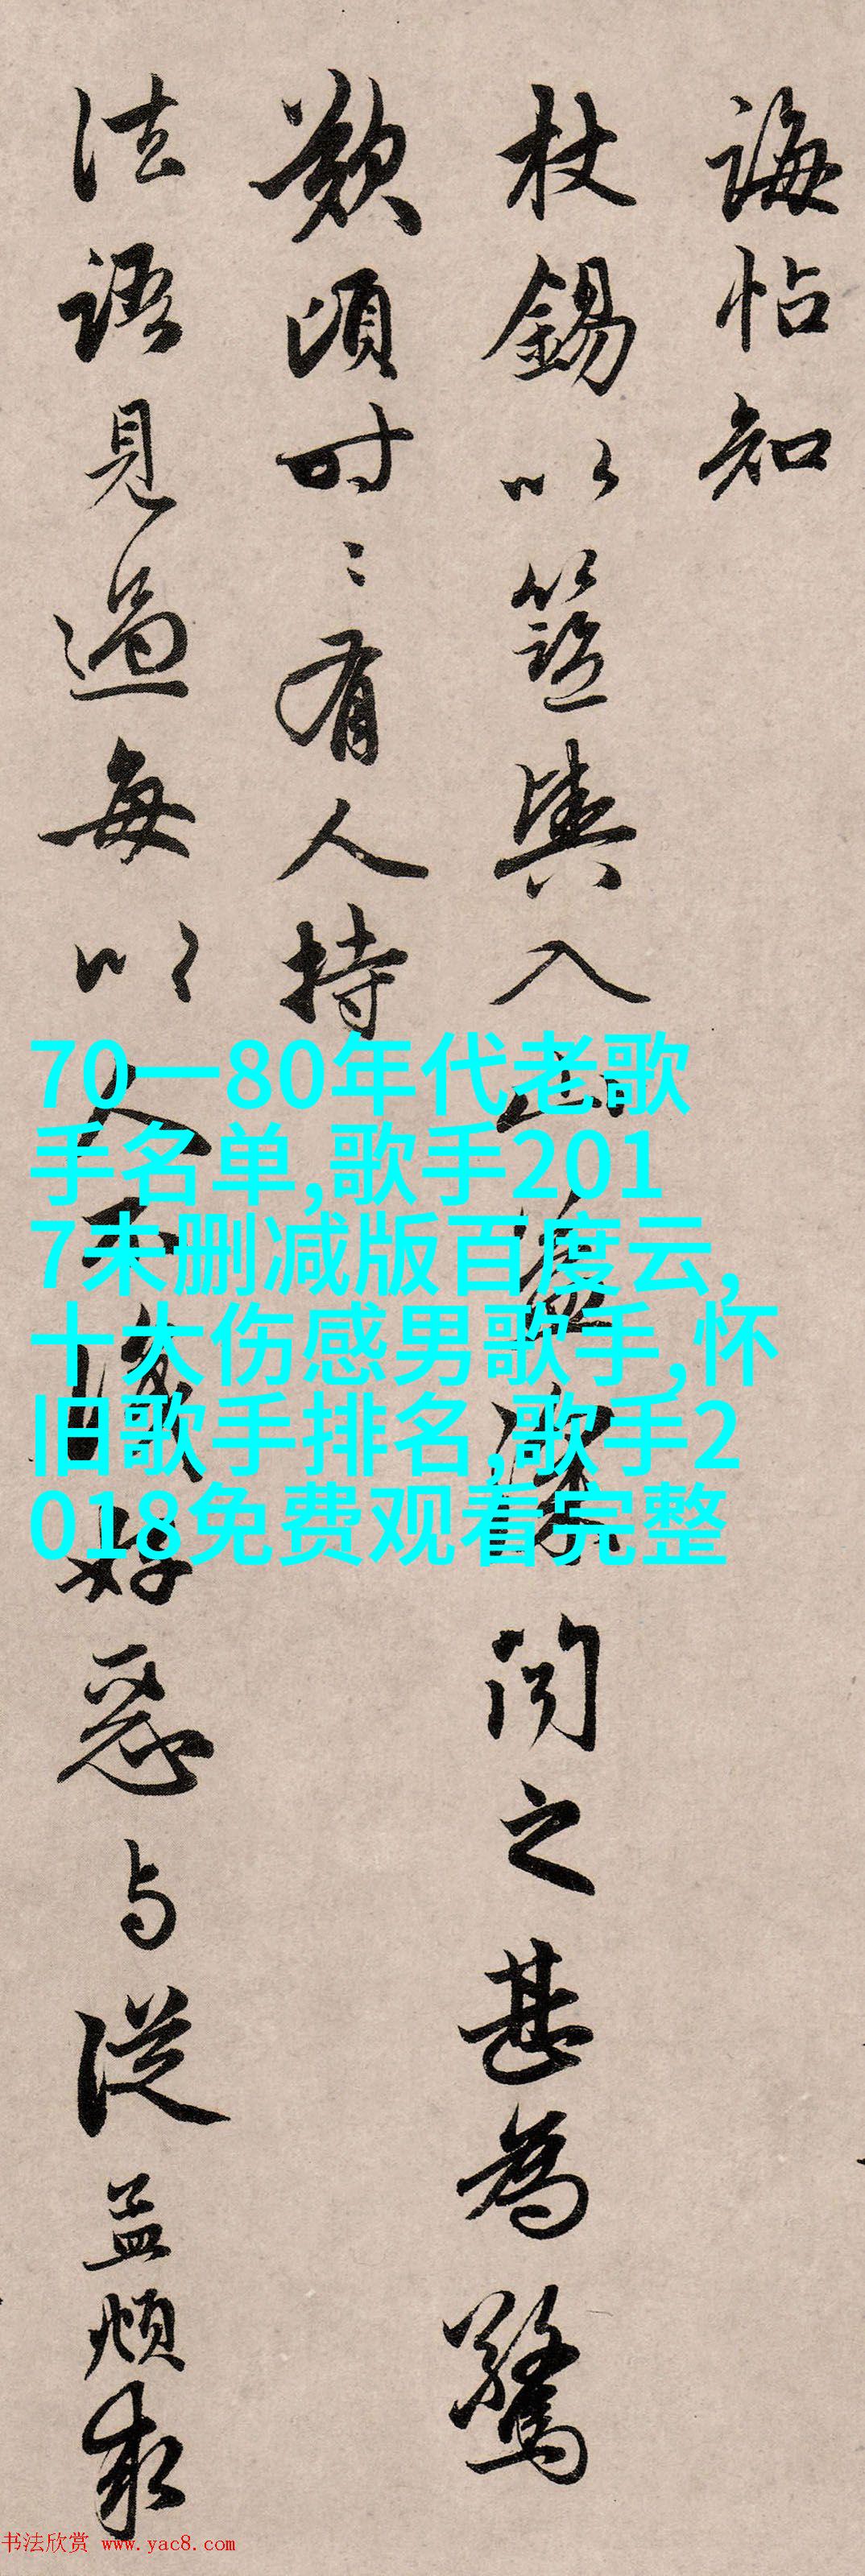 诲帖知
杖锡以篮舆入山
闻之甚为惊
叹顷时：有人持
法语见过每以人
好恶与从益烦
70一80年代老歌
手名单,歌手201
7未删减版百度云,
十大伤感男歌手,怀
旧歌手排名,歌手2
018免费观看完整
书法欣赏 www.yac8.com